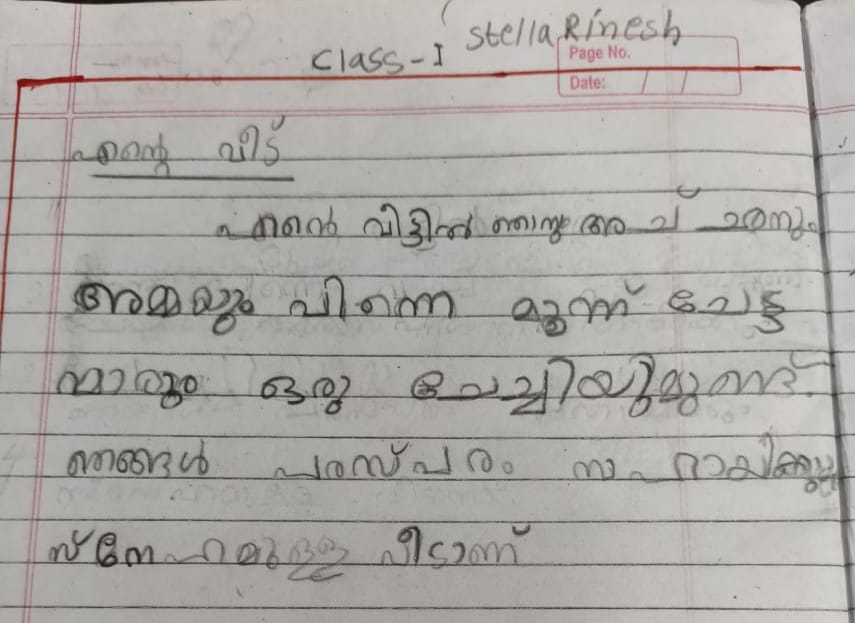 Stella Rinesh
Class-I
Page No.
Date:
എന്റെ വീട്
എന്റെ വീട്ടിൽ ഞാനും അച്ഛനും
അമ്മയും പിന്നെ മൂന്ന് ചേട്ട
ന്മാരും ഒരു ചേച്ചിയുമുണ്ട്.
ഞങ്ങൾ പരസ്പരം സഹായിക്കുന്ന
സ്നേഹമുള്ള വീടാണ്